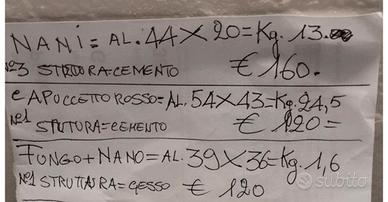 NANI= AL. 44X20=Kg. 13.
N°3 STRUTTURA=CEMENTO € 160.
CAPUCCETTO ROSSO= AL. 54X43=Kg. 24,5
N°1 STUTURA=CEMENTO € 120=
FUNGO+NANO= AL. 39X36=Kg. 1,6
N°1 STRUTTURA=GESSO € 120
subito